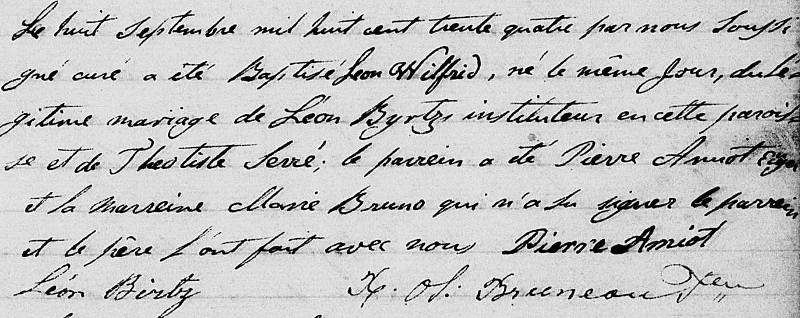 Le huit Septembre mil huit cent trente quatre par nous Soussi
gné curé a été Baptisé Leon Wilfrid, né le même Jour, du lé
gitime mariage de Léon Byrtzs instituteur en cette parois
se et de Theotiste Serré; le parrein a été Pierre Amiot
et la marreine Marie Bruno qui n'a su signer le parrein
et le père l'ont fait avec nous Pierre Amiot
Léon Birtz R. Ol. Bruneau Ptre